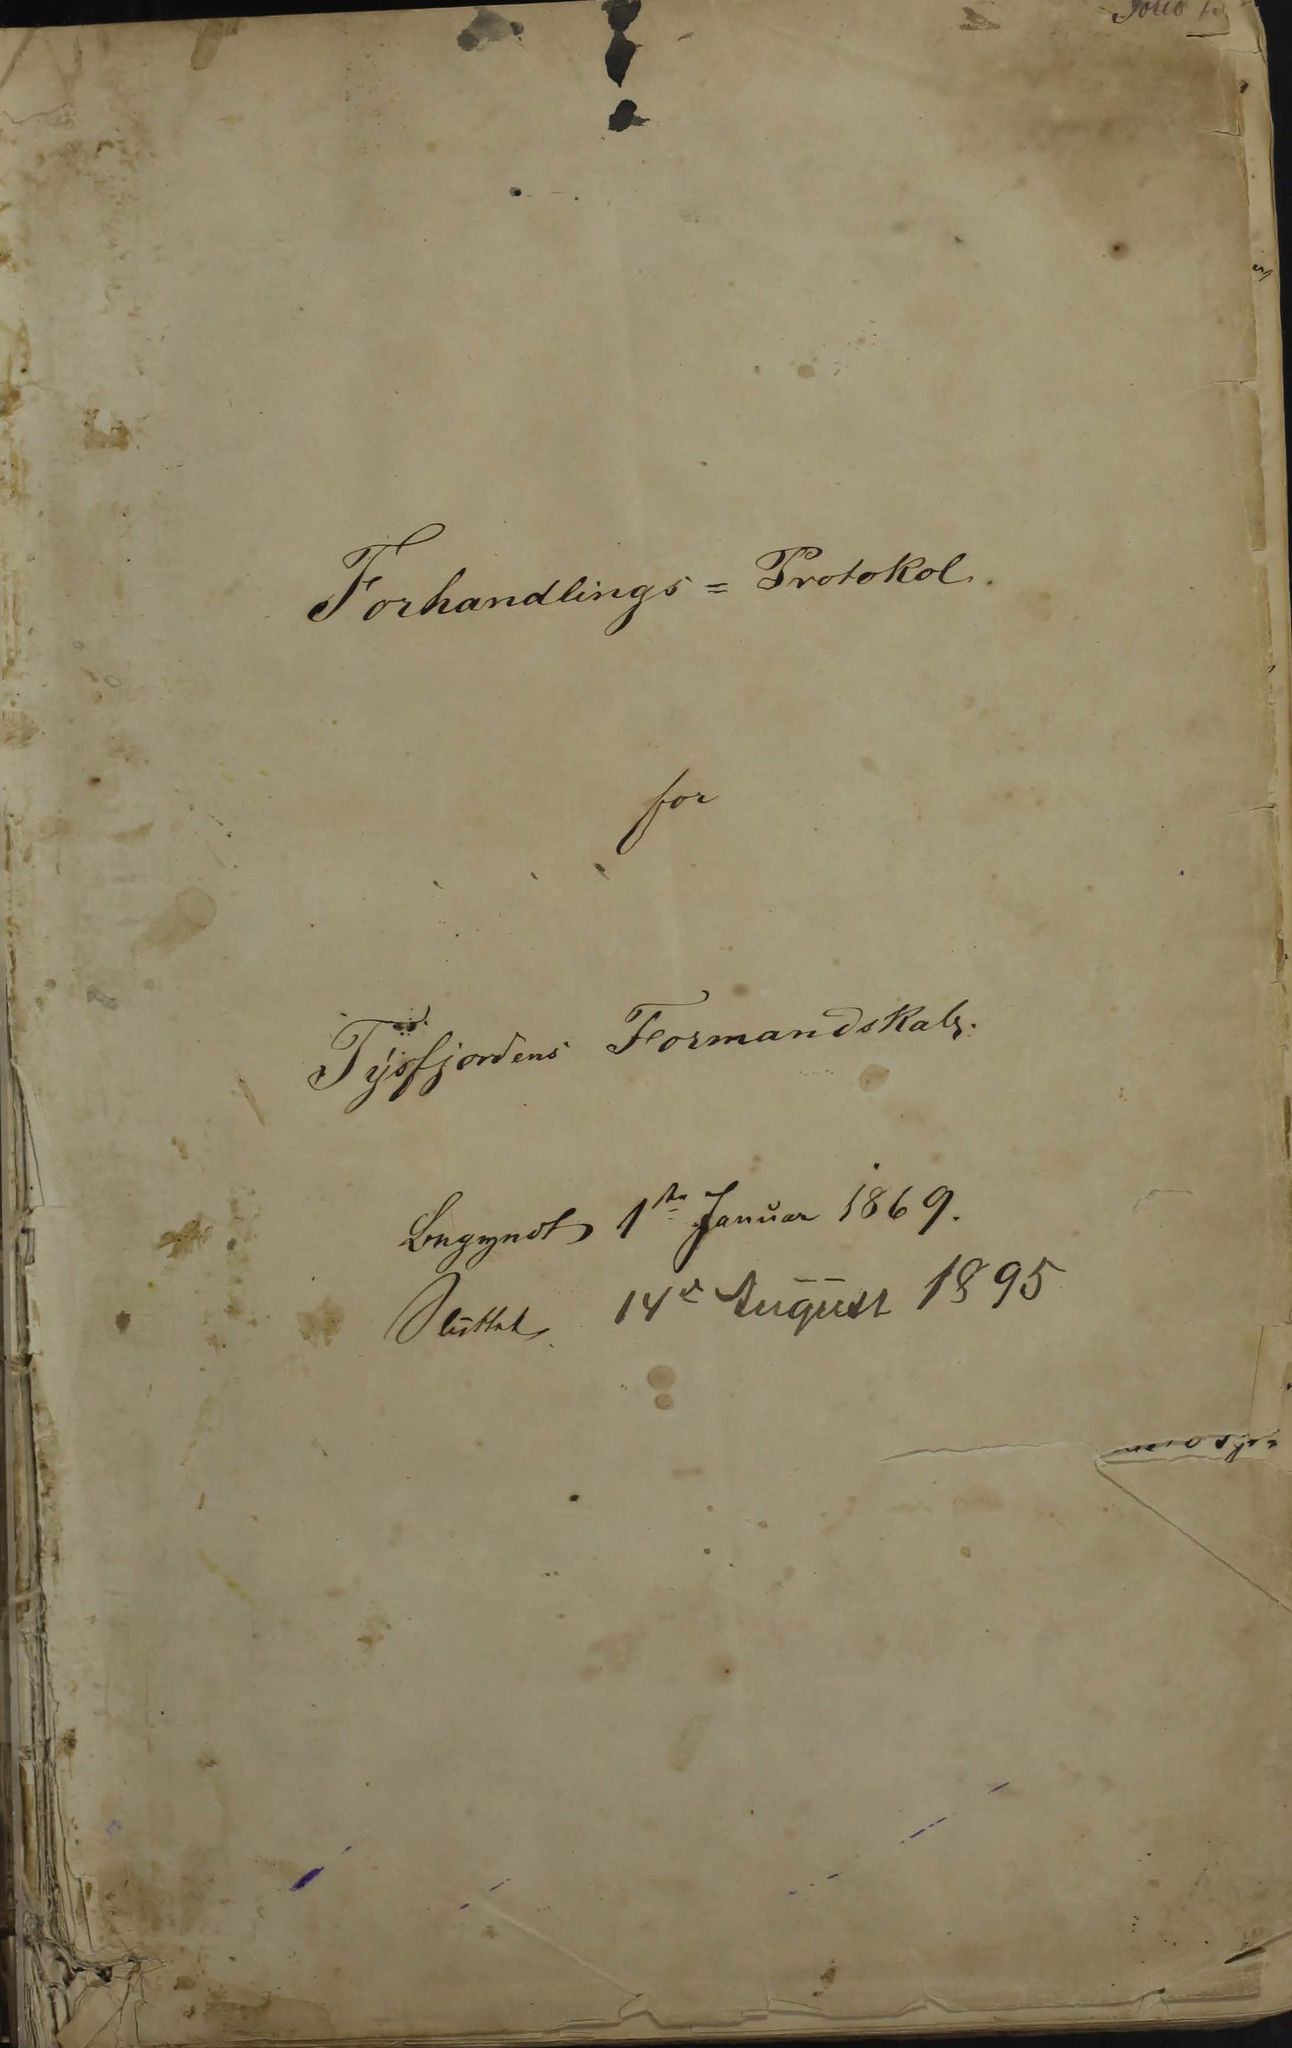 Folio
Forhandlings = Protokol.
for
Tysfjordens Formandskab.
Begyndt 1ste Januar 1869.
Sluttet 14de August 1895